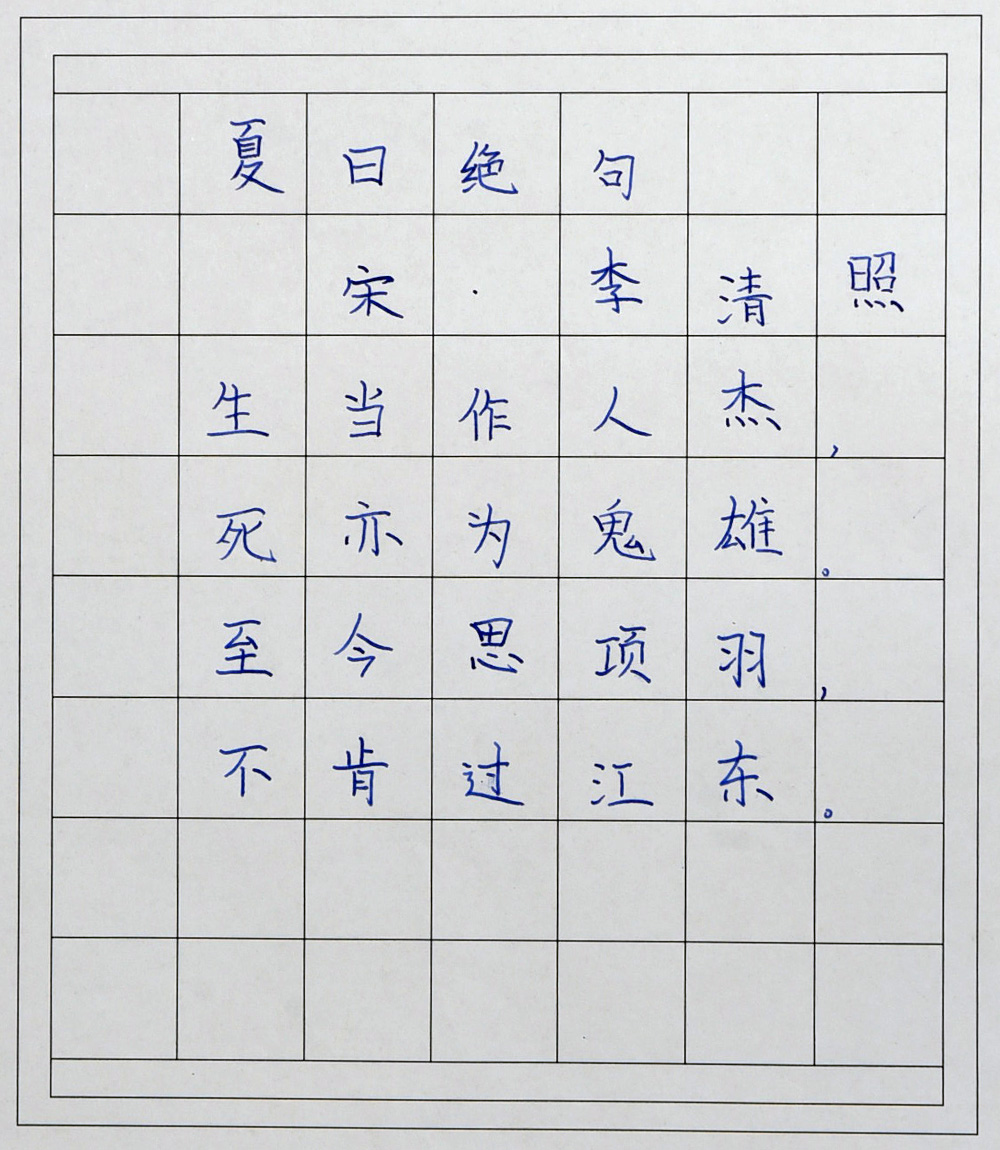 夏日绝句
宋·李清照
生当作人杰,
死亦为鬼雄。
至今思项羽,
不肯过江东。